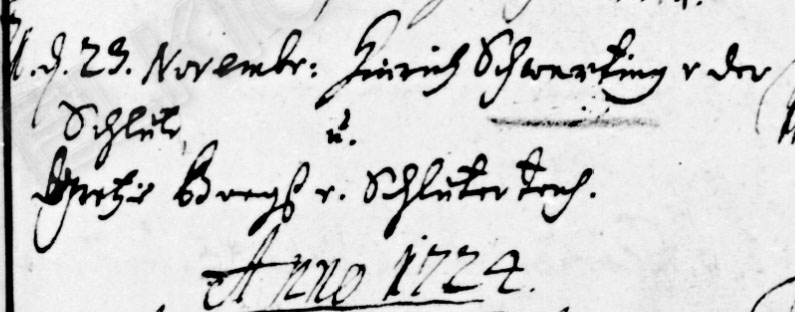 d. 23. Novembr: Hinrich Schwerting v der
Schlüte,
u.
Gretje Bregß v. Schlüter teich.
Anno 1724.